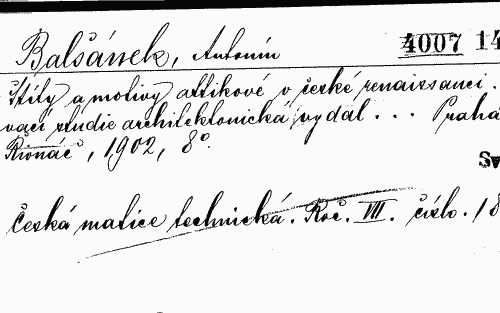 Balšánek, Antonín 4007 14
Štíty a motivy attikové v české renaissanci.
vací studie architektonická vydal . . . Praha
Rivnáč, 1902, 8°.
Sv
Česká matice technická. Roč. VIII. číslo. 18